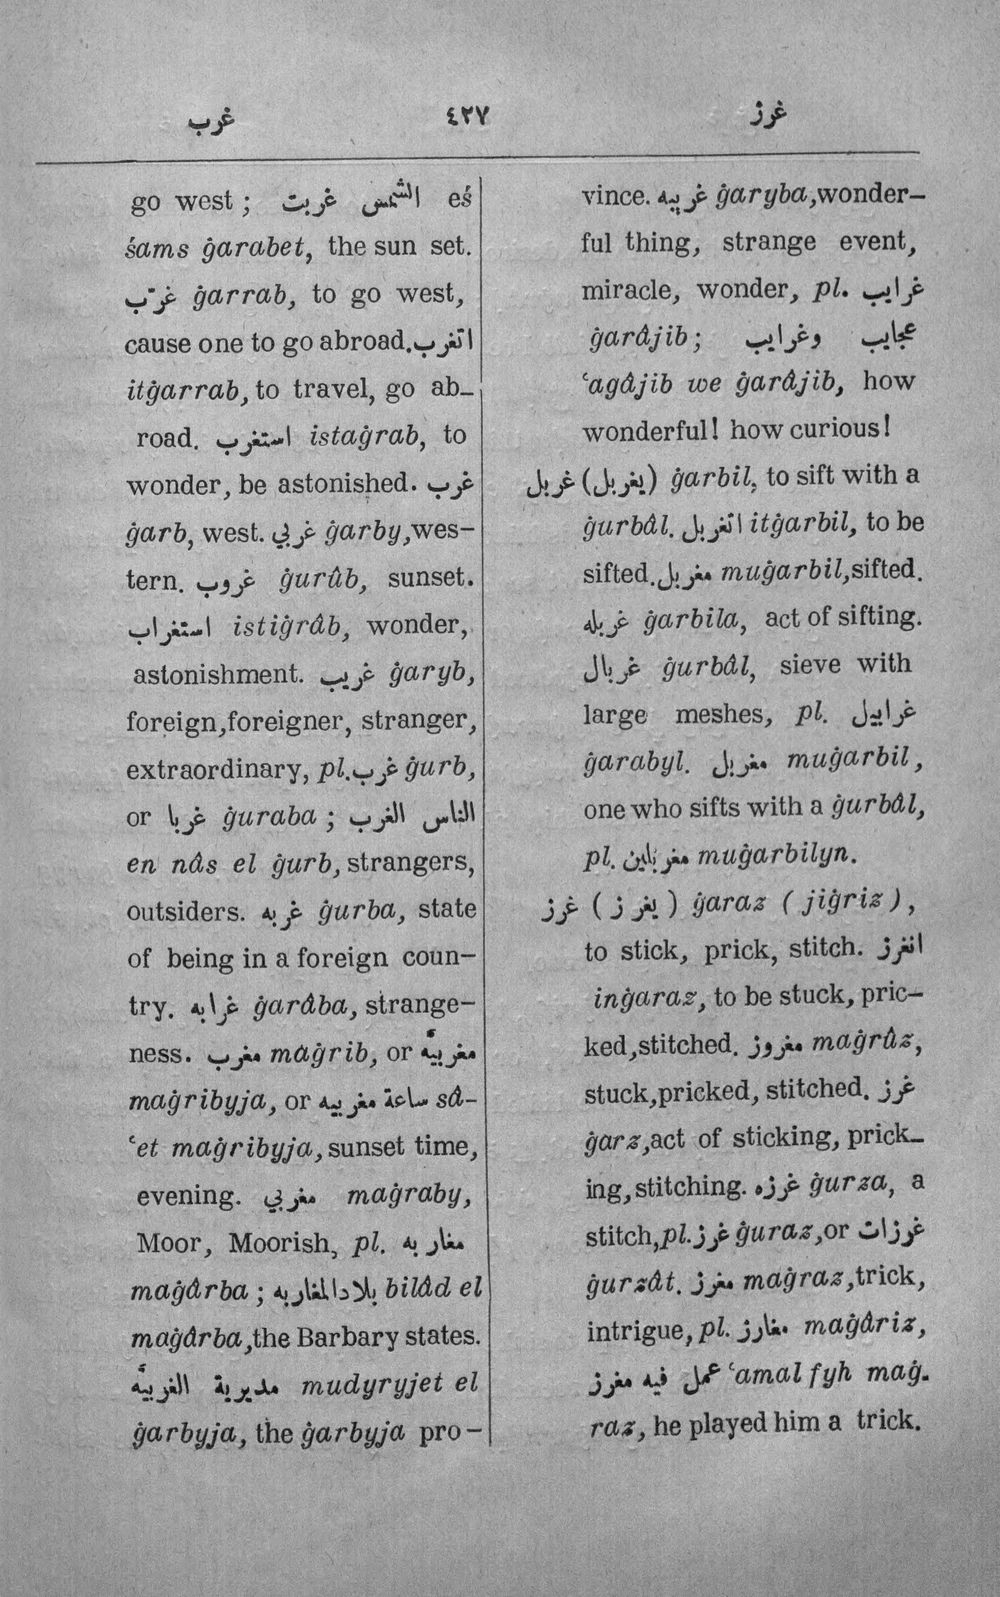 غرب ٤٢٧ غرز
go west ; الشمس غربت eś
śams ġarabet, the sun set.
غرّب ġarrab, to go west,
cause one to go abroad. اتغرب
itġarrab, to travel, go ab-
road. استغرب istaġrab, to
wonder, be astonished. غرب
ġarb, west. غربي ġarby, wes-
tern. غروب ġurûb, sunset.
استغراب istiġrâb, wonder,
astonishment. غريب ġaryb,
foreign, foreigner, stranger,
extraordinary, pl. غرب ġurb,
or غربا ġuraba ; الناس الغرب
en nâs el ġurb, strangers,
outsiders. غربه ġurba, state
of being in a foreign coun-
try. غرابه ġarâba, strange-
ness. مغرب maġrib, or مغربيّه
maġribyja, or ساعة مغربيه sâ-
ʿet maġribyja, sunset time,
evening. مغربي maġraby,
Moor, Moorish, pl. مغاربه
maġârba ; بلاد المغاربه bilâd el
maġârba, the Barbary states.
مديرية الغربيّه mudyryjet el
ġarbyja, the ġarbyja pro-
vince. غريبه ġaryba, wonder-
ful thing, strange event,
miracle, wonder, pl. غرايب
ġarâjib ; عجايب وغرايب
ʿagâjib we ġarâjib, how
wonderful! how curious!
غربل (يغربل) ġarbil, to sift with a
ġurbâl. اتغربل itġarbil, to be
sifted. مغربل muġarbil, sifted.
غربله ġarbila, act of sifting.
غربال ġurbâl, sieve with
large meshes, pl. غرابيل
ġarabyl. مغربل muġarbil,
one who sifts with a ġurbâl,
pl. مغربلين muġarbilyn.
غرز (يغرز) ġaraz (jiġriz),
to stick, prick, stitch. انغرز
inġaraz, to be stuck, pric-
ked, stitched. مغروز maġrûz,
stuck, pricked, stitched. غرز
ġarz, act of sticking, prick-
ing, stitching. غرزه ġurza, a
stitch, pl. غرز ġuraz, or غرزات
ġurzât. مغرز maġraz, trick,
intrigue, pl. مغارز maġâriz,
عمل فيه مغرز ʿamal fyh maġ-
raz, he played him a trick.